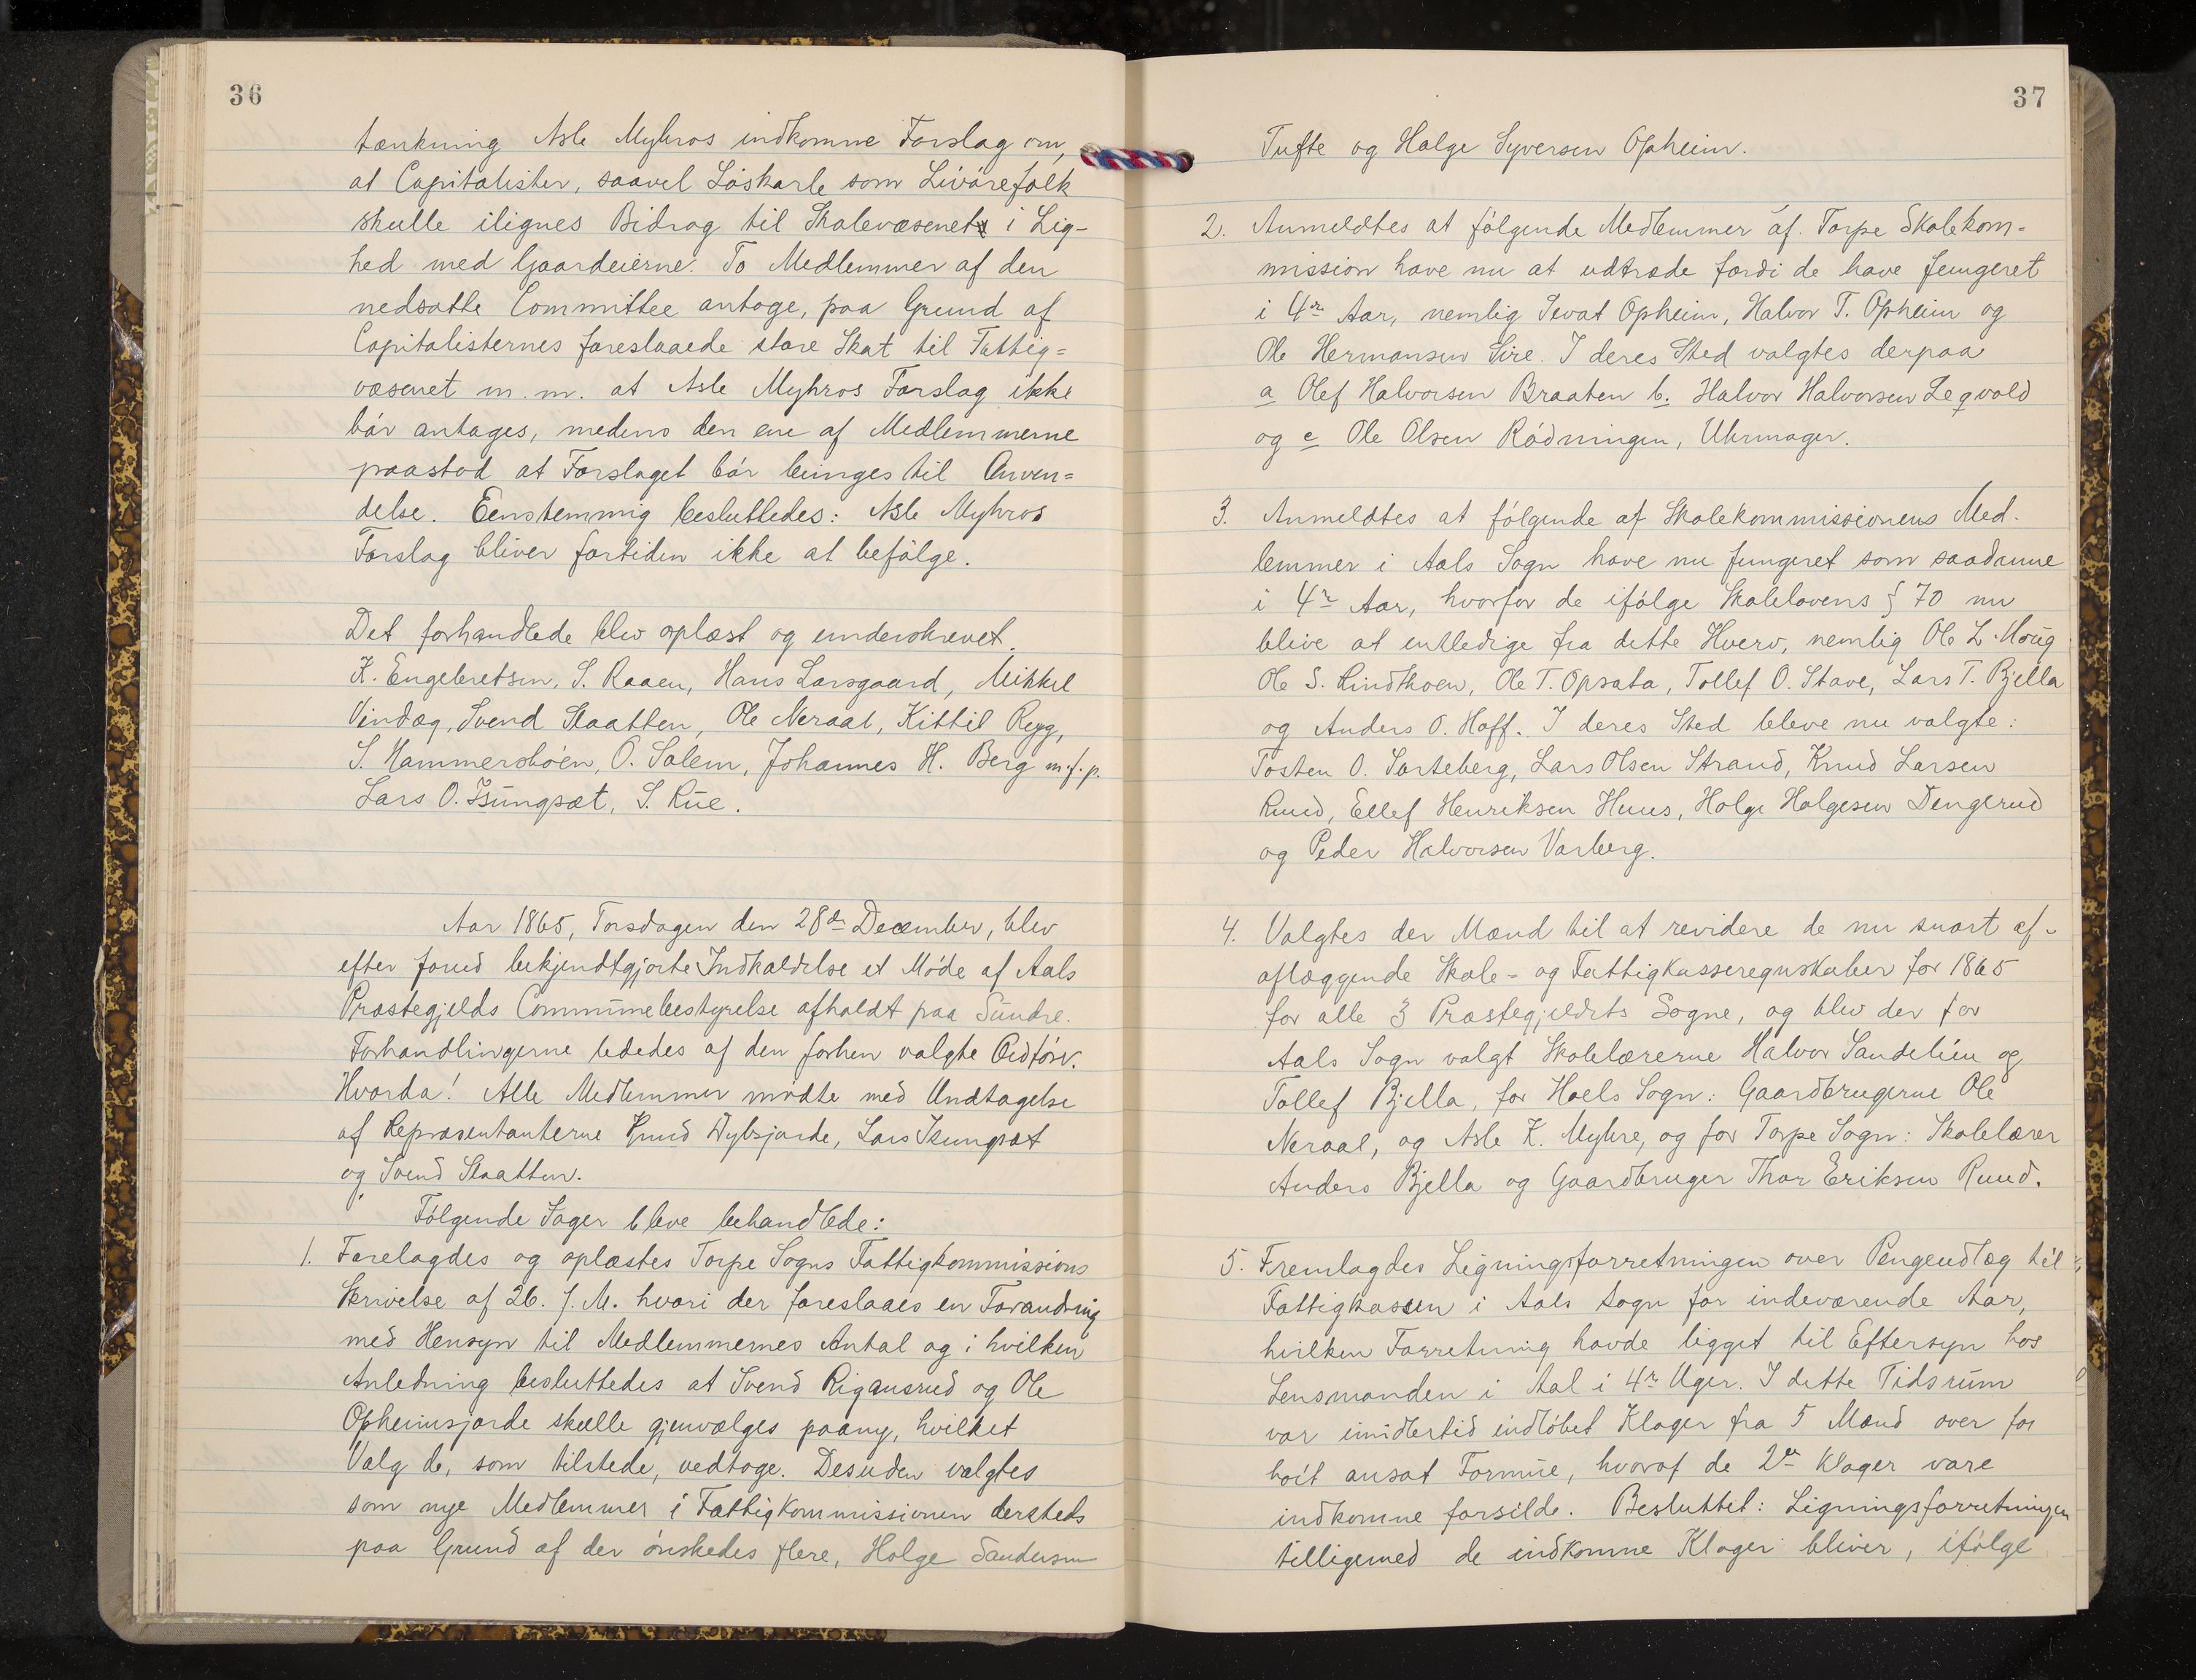 36
tænkning Asle Myhros indkomne Forslag om,
at Capitalister, saavel Löskarle som Livörefolk
skulle ilignes Bidrag til Skolevæsenet i Lig-
hed med Gaardeierne. To Medlemmer af den
nedsatte Committee antoge, paa Grund af
Capitalisternes foreslaaede store Skat til Fattig=
væsenet m.m. at Asle Myhros Forslag ikke
bör antages, medens den ene af Medlemmerne
paastod at Forslaget bör bringes til Anven=
delse. Eenstemmig besluttedes: Asle Myhros
Forslag bliver fortiden ikke at befölge.
Det forhandlede blev oplæst og underskrevet.
K. Engebretsen, S. Raaen, Hans Larsgaard, Mikkel
Vindæg, Svend Slaatten, Ole Neraal, Kittil Rygg,
S. Hammersböen, O. Solem, Johannes H. Berg m.f.p.
Lars O. Isungsæt, S. Rue.
Aar 1865, Torsdagen den 28de December, blev
efter forud bekjendtgjorte Indkaldelse et Möde af Aals
Præstegjelds Communebestyrelse afholdt paa Sundre.
Forhandlingerne lededes af den forhen valgte Ordförer.
Hvorda! Alle Medlemmer mödte med Undtagelse
af Repræsentanterne Knud Dybsjorde, Lars Isungsæt
og Svend Slaatten.
Fölgende Sager bleve behandlede:
1. Forelagdes og oplæstes Torpe Sogns Fattigkommissions
Skrivelse af 26. f. M. hvori der foreslaaes en Forandring
med Hensyn til Medlemmernes Antal og i hvilken
Anledning besluttedes at Svend Rigansrud og Ole
Opheimsjorde skulle gjenvælges paany, hvilket
Valg de, som tilstede, vedtoge. Desuden valgtes
som nye Medlemmer i Fattigkommissionen dersteds
paa Grund af der önskedes flere, Holge Sandersen
37
Tufte og Holge Syversen Opheim.
2. Anmeldtes at fölgende Medlemmer af Torpe Skolekom=
mission have nu at udtræde fordi de have fungeret
i 4re Aar, nemlig Sevat Opheim, Halvor T. Opheim og
Ole Hermansen Sire. I deres Sted valgtes derpaa
a Olef Halvorsen Braaten b. Halvor Halvorsen Leqvold
og c Ole Olsen Rödningen, Uhrmager.
3. Anmeldtes at fölgende af Skolekommissionens Med-
lemmer i Aals Sogn have nu fungeret som saadanne
i 4re Aar, hvorfor de ifölge Skolelovens § 70 nu
blive at entledige fra dette Hverv, nemlig Ole L. Moug
Ole S. Rindthoen, Ole T. Opsata, Tollef O. Stave, Lars T. Bjella
og Anders O. Hoff. I deres Sted bleve nu valgte:
Tosten O. Sorteberg, Lars Olsen Strand, Knud Larsen
Ruud, Ellef Henriksen Huus, Holge Holgesen Dengerud
og Peder Halvorsen Varberg.
4. Valgtes der Mænd til at revidere de nu snart af-
aflæggende Skole- og Fattigkasseregnskaber for 1865
for alle 3 Præstegjeldets Sogne, og blev der for
Aals Sogn valgt Skolelærerne Halvor Sandelien og
Tollef Bjella, for Hoels Sogn: Gaardbrugerne Ole
Neraal, og Asle K. Myhre, og for Torpe Sogn: Skolelærer
Anders Bjella og Gaardbruger Thor Eriksen Ruud.
5. Fremlagdes Ligningsforretningen over Pengeudlæg til
Fattigkassen i Aals Sogn for indeværende Aar,
hvilken Forretning havde ligget til Eftersyn hos
Lensmanden i Aal i 4re Uger. I dette Tidsrum
var imidlertid indlöbet Klager fra 5 Mænd over for
höit ansat Formue, hvoraf de 2de Klager vare
indkomne forsilde. Besluttet: Ligningsforretningen
tilligemed de indkomne Klager bliver, ifölge